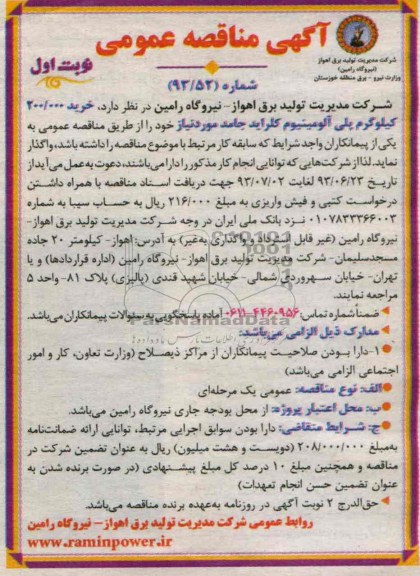 آگهی مناقصه عمومی
شرکت مدیریت تولید برق اهواز
(نیروگاه رامین)
وزارت نیرو - برق منطقه خوزستان
نوبت اول
شماره (۹۳/۵۲)
شرکت مدیریت تولید برق اهواز- نیروگاه رامین در نظر دارد، خرید ۲۰۰/۰۰۰
کیلوگرم پلی آلومینیوم کلراید جامد موردنیاز خود را از طریق مناقصه عمومی به
یکی از پیمانکاران واجد شرایط که سابقه کار مرتبط با موضوع مناقصه را داشته باشد، واگذار
نماید. لذا از شرکت‌هایی که توانایی انجام کار مذکور را دارا می‌باشند، دعوت به عمل می‌آید از
تاریخ ۹۳/۰۶/۲۳ لغایت ۹۳/۰۷/۰۲ جهت دریافت اسناد مناقصه با همراه داشتن
درخواست کتبی و فیش واریزی به مبلغ ۲۱۶/۰۰۰ ریال به حساب سیبا به شماره
۰۱۰۷۸۳۳۳۶۶۰۰۳ نزد بانک ملی ایران در وجه شرکت مدیریت تولید برق اهواز-
نیروگاه رامین (غیر قابل استرداد و واگذاری به‌غیر) به آدرس: اهواز- کیلومتر ۲۰ جاده
مسجدسلیمان- شرکت مدیریت تولید برق اهواز- نیروگاه رامین (اداره قراردادها) و یا
تهران- خیابان سهروردی شمالی- خیابان شهید قندی (پالیزی) پلاک ۸۱- واحد ۵
مراجعه نمایند.
ضمناً شماره تماس: ۴۴۶۰۹۵۶-۰۶۱۱ آماده پاسخگویی به سئوالات پیمانکاران می‌باشد.
مدارک ذیل الزامی می‌باشد:
۱- دارا بودن صلاحیت پیمانکاران از مراکز ذیصلاح (وزارت تعاون، کار و امور
اجتماعی الزامی می‌باشد)
الف: نوع مناقصه: عمومی یک مرحله‌ای
ب: محل اعتبار پروژه: از محل بودجه جاری نیروگاه رامین می‌باشد.
ج: شرایط متقاضی: دارا بودن سوابق اجرایی مرتبط، توانایی ارائه ضمانت‌نامه
به‌مبلغ ۲۰۸/۰۰۰/۰۰۰ (دویست و هشت میلیون) ریال به عنوان تضمین شرکت در
مناقصه و همچنین مبلغ ۱۰ درصد کل مبلغ پیشنهادی (در صورت برنده شدن به
عنوان تضمین حسن انجام تعهدات)
حق‌الدرج ۲ نوبت آگهی در روزنامه به‌عهده برنده مناقصه می‌باشد.
روابط عمومی شرکت مدیریت تولید برق اهواز- نیروگاه رامین
www.raminpower.ir